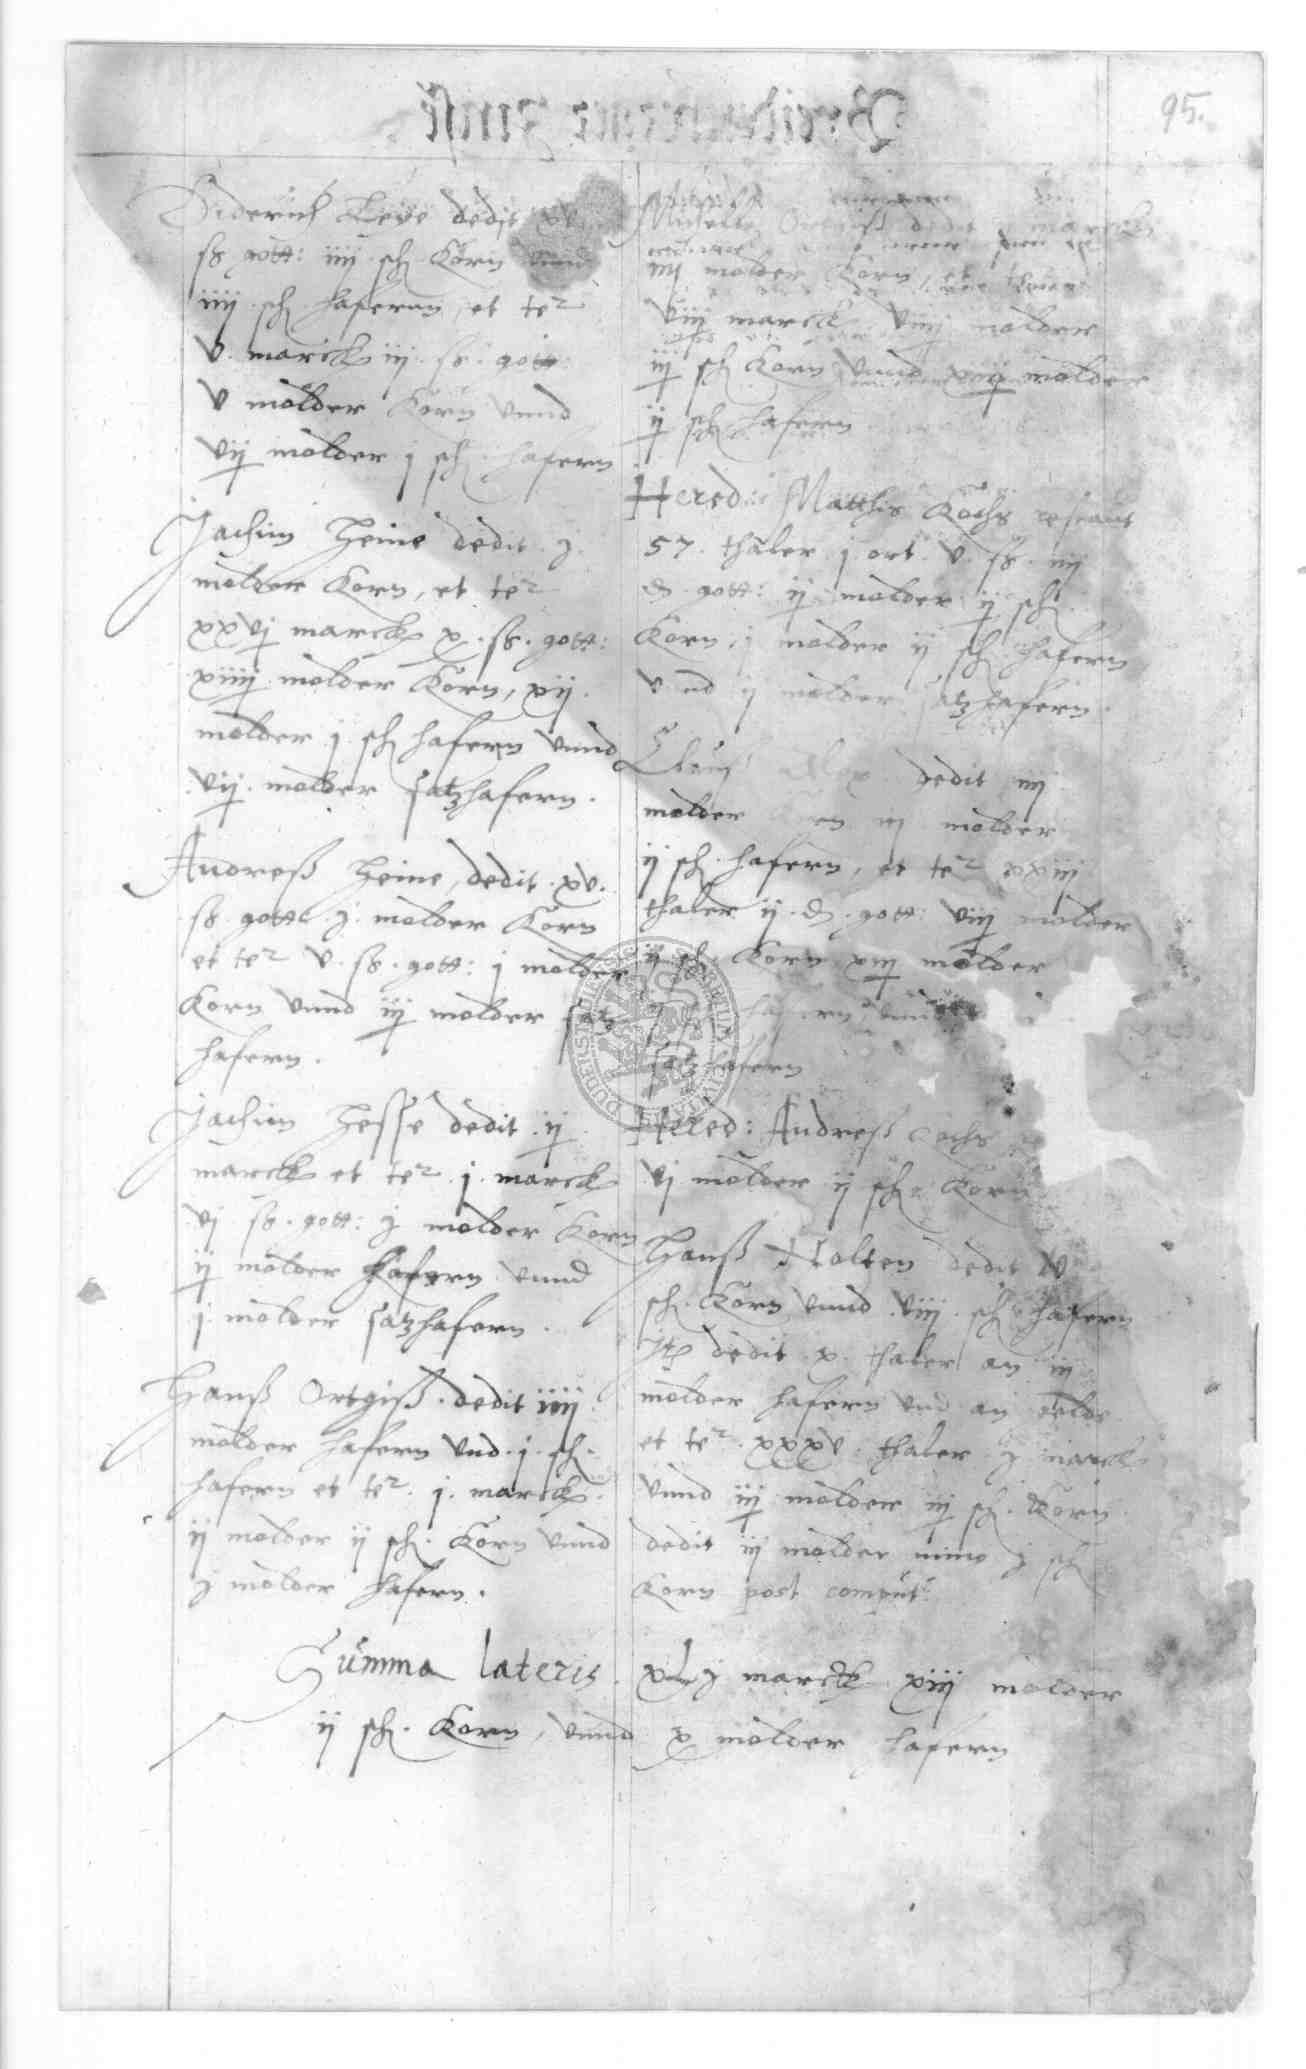 95.
Diderich Leve dedit xv
ß gott: iiij sch Korn vnnd
iiij sch hafernn, et te͂r
v marck iij ß gott:
v molder Korn vnnd
vij molder j sch hafern
Jachim Heine dedit j
molder Korn, et te͂r
xxvj marck x ß. gott:
xiiij molder Korn, xij
molder j sch hafern vnnd
vij molder satzhafern.
Andreß Heine, dedit xv.
ß gott: j molder Korn
et te͂r v. ß. gott: j molder
Korn vnnd iij molder satz
hafern.
Jachim Hesse dedit ij
marck et te͂r j. marck
vj ß. gott: j molder Korn
ij molder hafern vnnd
j molder satzhafern.
Hanß Ortgiß dedit iiij
molder hafern vnd j sch.
hafern et te͂r j. marck.
ij molder ij sch. Korn vnnd
j molder hafern.
Ortgiß dedit marck
iij molder Korn, et
viij marck viiij molder
iij sch Korn vnnd molder
ij sch hafern
Hered: Matthis Kochs restant
57. thaler j ort v. ß. iij
₰ gott: ij molder ij sch
Korn, j molder ij sch hafern
vnd ij molder satzhafern.
dedit iij
molder molder
ij sch hafern, et te͂r xxiij
thaler ij ₰ gott: viij molder
ij sch. Korn xiij molder
hafern vnnd
satzhafern
Hered: Andreß Kochs
vj molder ij sch Korn
Hanß Nolten dedit iv
sch. Korn vnnd viij sch hafern
Jt͂ dedit x. thaler an iij
molder hafern vnd an gelde
et te͂r xxxv. thaler j marck
vnnd iij molder iij sch. Korn
dedit iij molder min9 j sch
Korn post comput:
Summa lateris xlj marck xiij molder
ij sch. Korn, vnnd x molder hafern